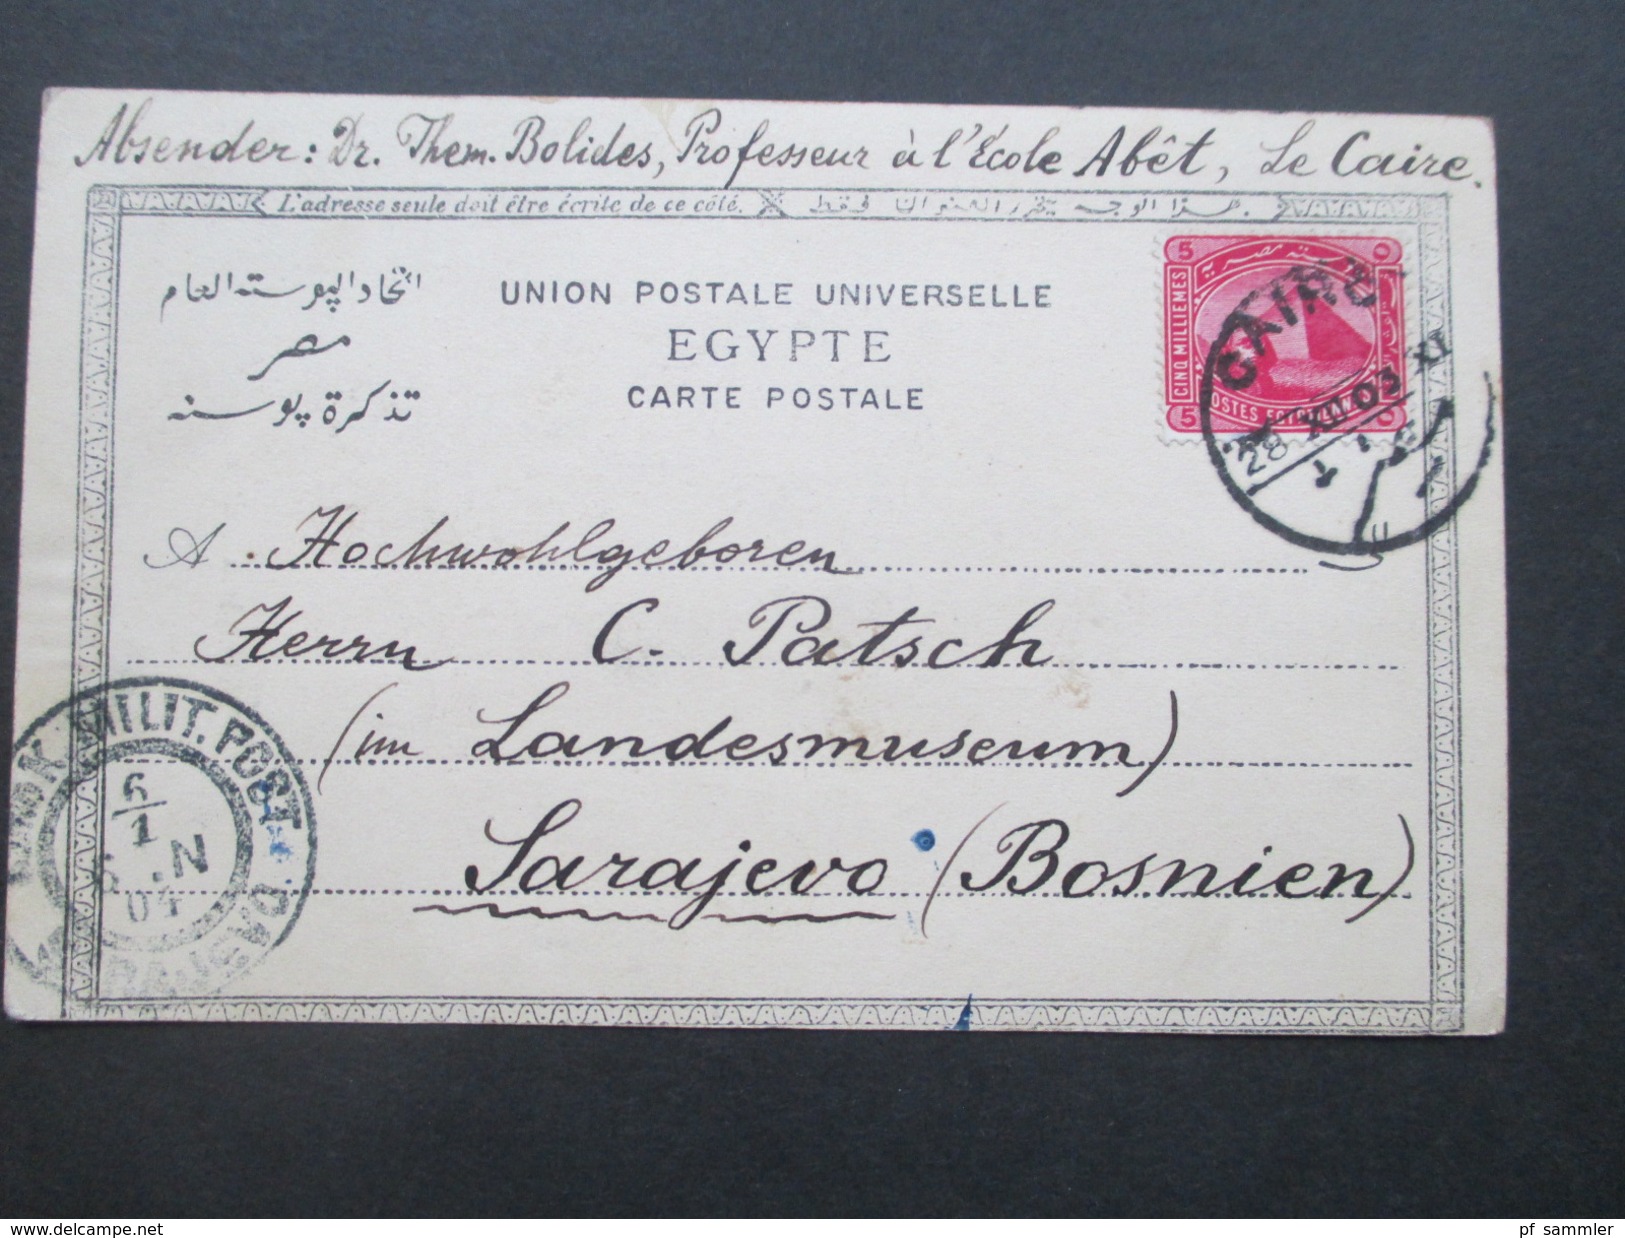 Absender: Dr. Them. Bolides, Professeur à l'École Abêt, Le Caire.
L'adresse seule doit être écrite de ce côté. هذا الوجه يحرر العنوان فقط.
اتحاد البوسته العام
مصر
تذكرة بوسته
UNION POSTALE UNIVERSELLE
EGYPTE
CARTE POSTALE
5
CINQ MILLIEMES
5
CAIRE
28 XII 03 XI
A Hochwohlgeboren
Herrn C. Patsch
(im Landesmuseum)
Sarajevo (Bosnien)
K. MILIT. POST
6/1
N
04
SARAJEVO
www.delcampe.net
pf_sammler